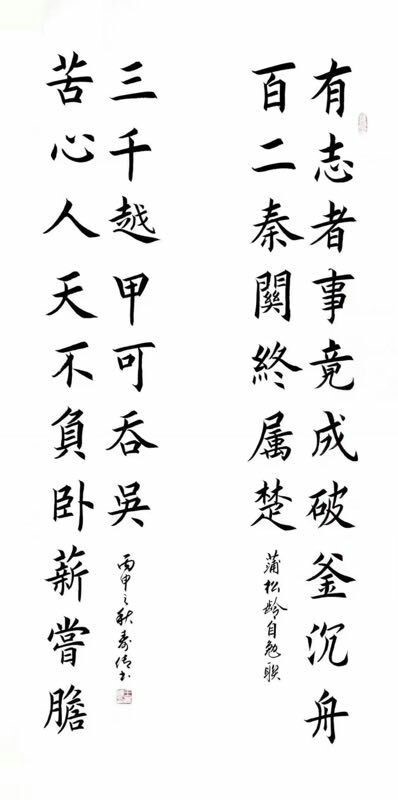 有志者事竟成破釜沉舟
百二秦關終属楚
蒲松龄自勉联
苦心人天不負卧薪嘗膽
三千越甲可吞吳
丙申之秋书